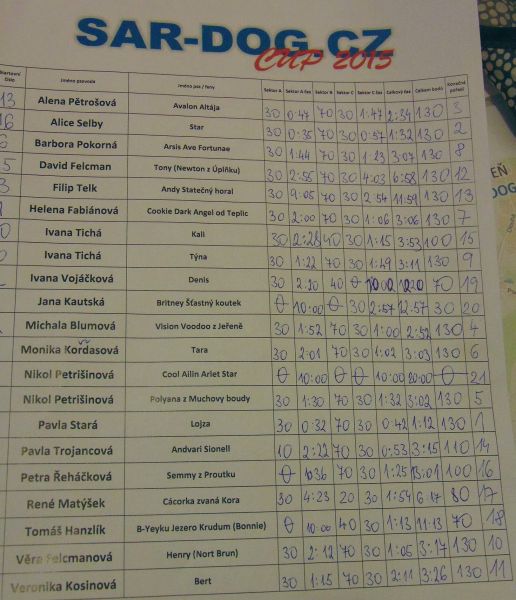 SAR-DOG.CZ
CUP 2015
Startovní číslo Jméno psovoda Jméno psa / feny Sektor A Sektor A čas Sektor A Sektor C Sektor C čas Celkový čas Celkem bodů Konečné pořadí
13 Alena Pětrošová Avalon Altája 30 0:47 70 30 1:47 2:34 130 3
16 Alice Selby Star 30 0:35 70 30 0:57 1:32 130 2
Barbora Pokorná Arsis Ave Fortunae 30 1:44 70 30 1:23 3:07 130 8
5 David Felcman Tony (Newton z Úplňku) 30 2:55 70 30 4:03 6:58 130 12
3 Filip Telk Andy Statečný horal 30 9:05 70 30 2:54 11:59 130 13
Helena Fabiánová Cookie Dark Angel od Teplic 30 2:00 70 30 1:06 3:06 130 7
Ivana Tichá Kali 30 2:28 40 30 1:15 3:53 100 15
Ivana Tichá Týna 30 1:22 70 30 1:49 3:11 130 9
Ivana Vojáčková Denis 30 2:20 40 0 10:00 12:20 70 19
Jana Kautská Britney Šťastný koutek 0 10:00 0 30 2:57 12:57 30 20
Michala Blumová Vision Voodoo z Jeřeně 30 1:52 70 30 1:00 2:52 130 4
Monika Korďasová Tara 30 2:01 70 30 1:02 3:03 130 6
Nikol Petrišinová Cool Ailin Arlet Star 0 10:00 0 0 10:00 20:00 0 21
Nikol Petrišinová Polyana z Muchovy boudy 30 1:30 70 30 1:32 3:02 130 5
Pavla Stará Lojza 30 0:32 70 30 0:42 1:12 130 1
Pavla Trojancová Andvari Sionell 10 2:22 70 30 0:53 3:15 110 14
Petra Řeháčková Semmy z Proutku 0 1:36 70 30 1:25 3:01 100 16
René Matýšek Cácorka zvaná Kora 30 4:23 20 30 1:54 6:17 80 17
Tomáš Hanzlík B-Yeyku Jezero Krudum (Bonnie) 0 10:00 40 30 1:13 11:13 70 18
Věra Felcmanová Henry (Nort Brun) 30 2:12 70 30 1:05 3:17 130 10
Veronika Kosinová Bert 30 1:15 70 30 2:11 3:26 130 11